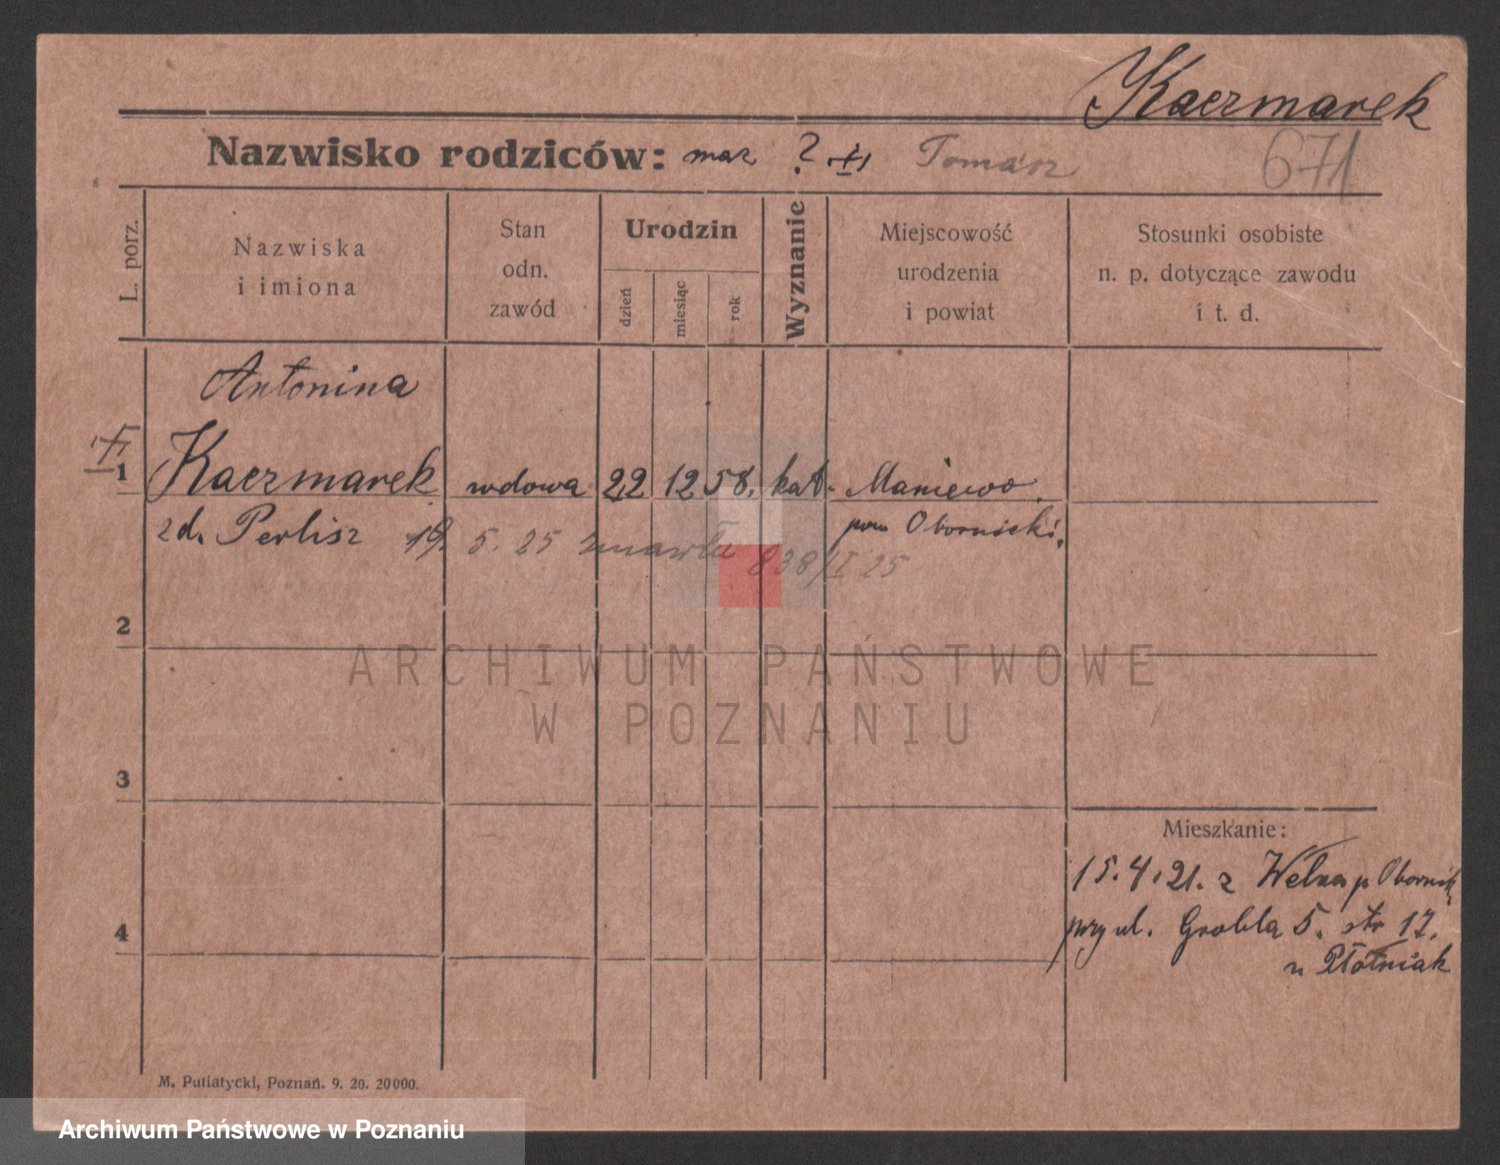 Kaczmarek
Nazwisko rodziców: mąż ? Tomasz 671
L. porz.
Nazwiska
i imiona
Stan
odn.
zawód
Urodzin
dzień
miesiąc
rok
Wyznanie
Miejscowość
urodzenia
i powiat
Stosunki osobiste
n. p. dotyczące zawodu
i t. d.
Antonina
1 Kaczmarek wdowa 22 12 58. kat. Maniewo
zd. Perlisz pow Obornicki.
19. 5. 25 zmarła 838/I 25
2
ARCHIWUM PAŃSTWOWE
W POZNANIU
3
Mieszkanie:
15.4.21. z Wełna p Obornik
4
przy ul. Grobla 5. str 17.
u Płótniak
M. Putiatycki, Poznań. 9. 20. 20000.
Archiwum Państwowe w Poznaniu